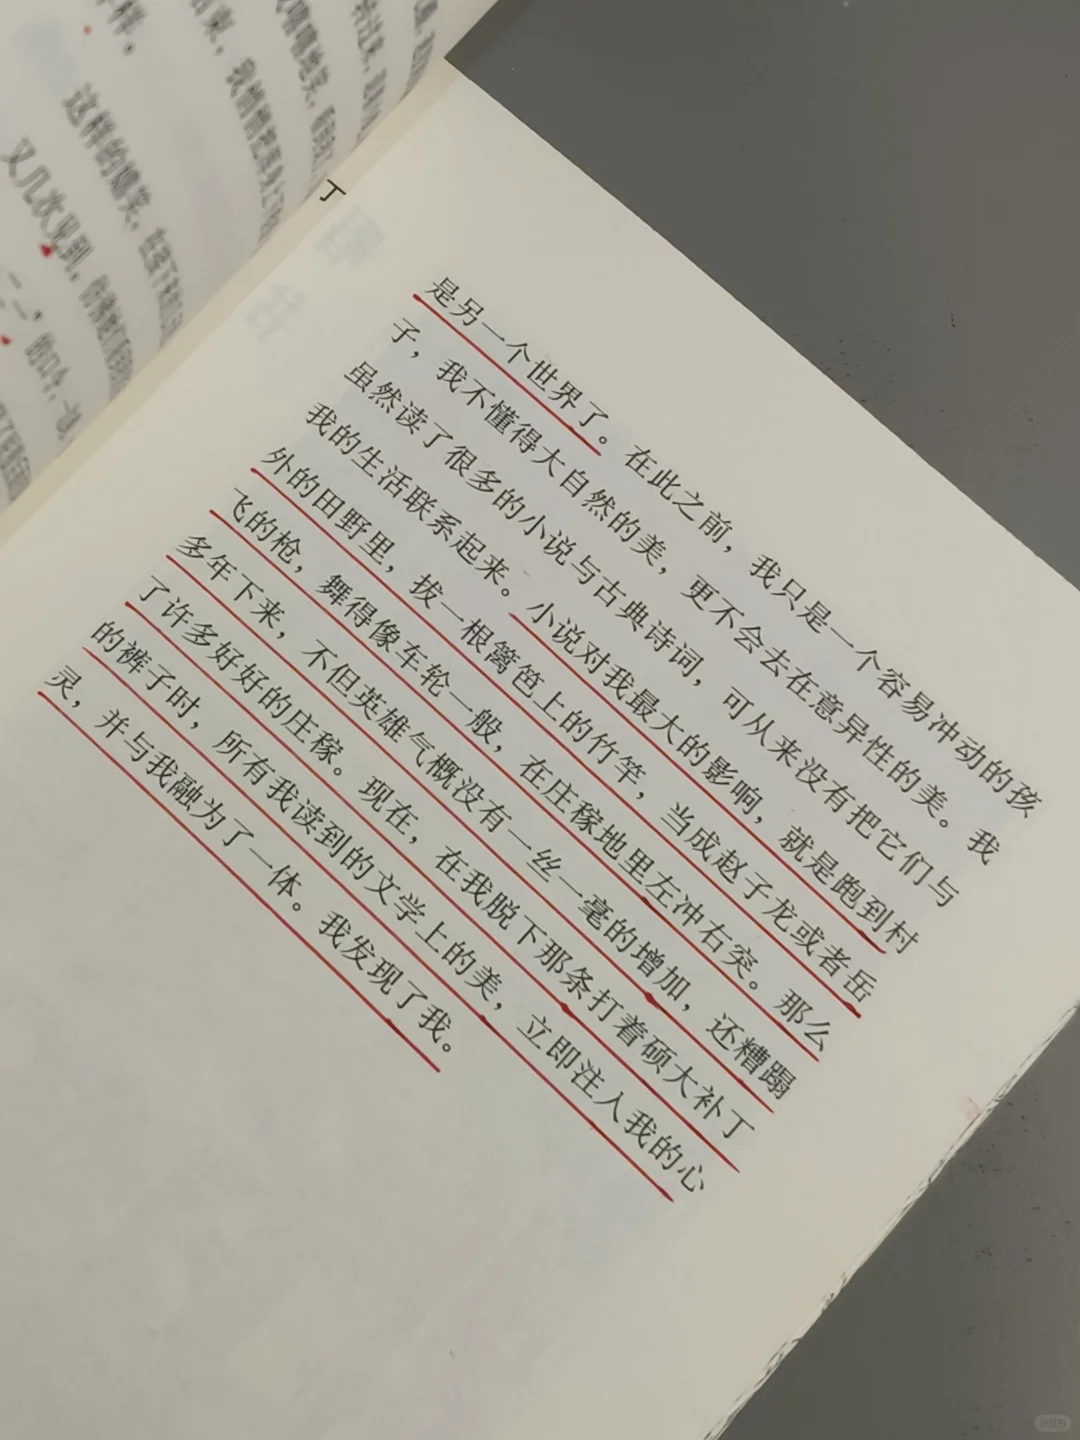 样。
这样的嬉笑，
又几次见到，
丁
是另一个世界了。在此之前，我只是一个容易冲动的孩
子，我不懂得大自然的美，更不会去在意异性的美。我
虽然读了很多的小说与古典诗词，可从来没有把它们与
我的生活联系起来。小说对我最大的影响，就是跑到村
外的田野里，拔一根篱笆上的竹竿，当成赵子龙或者岳
飞的枪，舞得像车轮一般，在庄稼地里左冲右突。那么
多年下来，不但英雄气概没有一丝一毫的增加，还糟蹋
了许多好好的庄稼。现在，在我脱下那条打着硕大补丁
的裤子时，所有我读到的文学上的美，立即注入我的心
灵，并与我融为了一体。我发现了我。
小红书